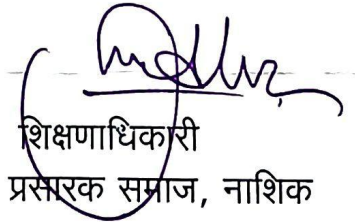 शिक्षणाधिकारी
प्रसारक समाज, नाशिक